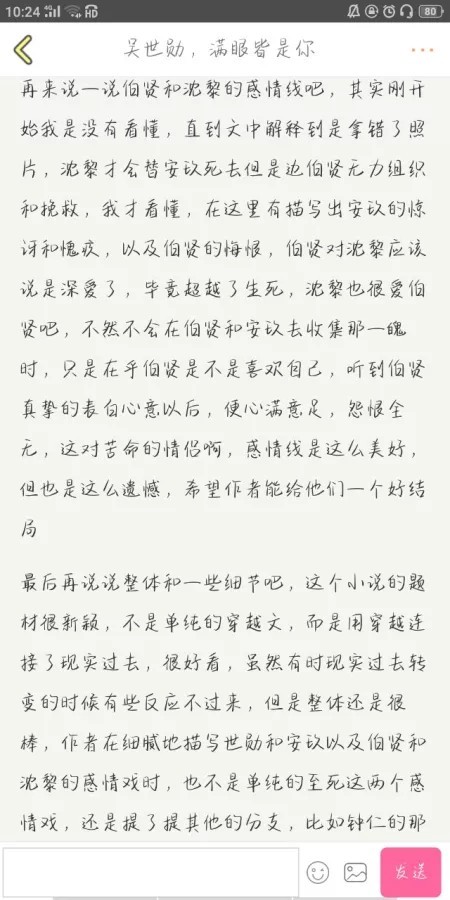 10:24 4G HD 80
吴世勋，满眼皆是你
再来说一说伯贤和沈黎的感情线吧，其实刚开
始我是没有看懂，直到文中解释到是拿错了照
片，沈黎才会替安玖死去但是边伯贤无力组织
和挽救，我才看懂，在这里有描写出安玖的惊
讶和愧疚，以及伯贤的悔恨，伯贤对沈黎应该
说是深爱了，毕竟超越了生死，沈黎也很爱伯
贤吧，不然不会在伯贤和安玖去收集那一魄
时，只是在乎伯贤是不是喜欢自己，听到伯贤
真挚的表白心意以后，便心满意足，怨恨全
无，这对苦命的情侣啊，感情线是这么美好，
但也是这么遗憾，希望作者能给他们一个好结
局
最后再说说整体和一些细节吧，这个小说的题
材很新颖，不是单纯的穿越文，而是用穿越连
接了现实过去，很好看，虽然有时现实过去转
变的时候有些反应不过来，但是整体还是很
棒，作者在细腻地描写世勋和安玖以及伯贤和
沈黎的感情戏时，也不是单纯的至死这两个感
情戏，还是提了提其他的分支，比如钟仁的那
发送